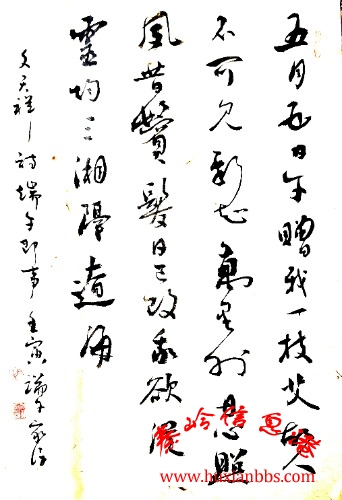 五月五日午贈我一枝艾故人
不可見新知萬里外丹心照
夙昔鬢髮日已改我欲從
靈均三湘隔遼海
文天祥詩端午即事壬寅端午
www.huxianbbs.com